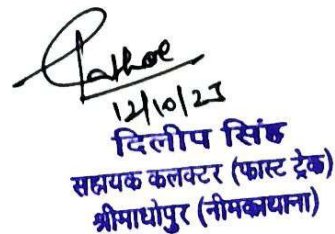 12/10/23
दिलीप सिंह
सहायक कलक्टर (फास्ट ट्रेक)
श्रीमाधोपुर (नीमकाथाना)